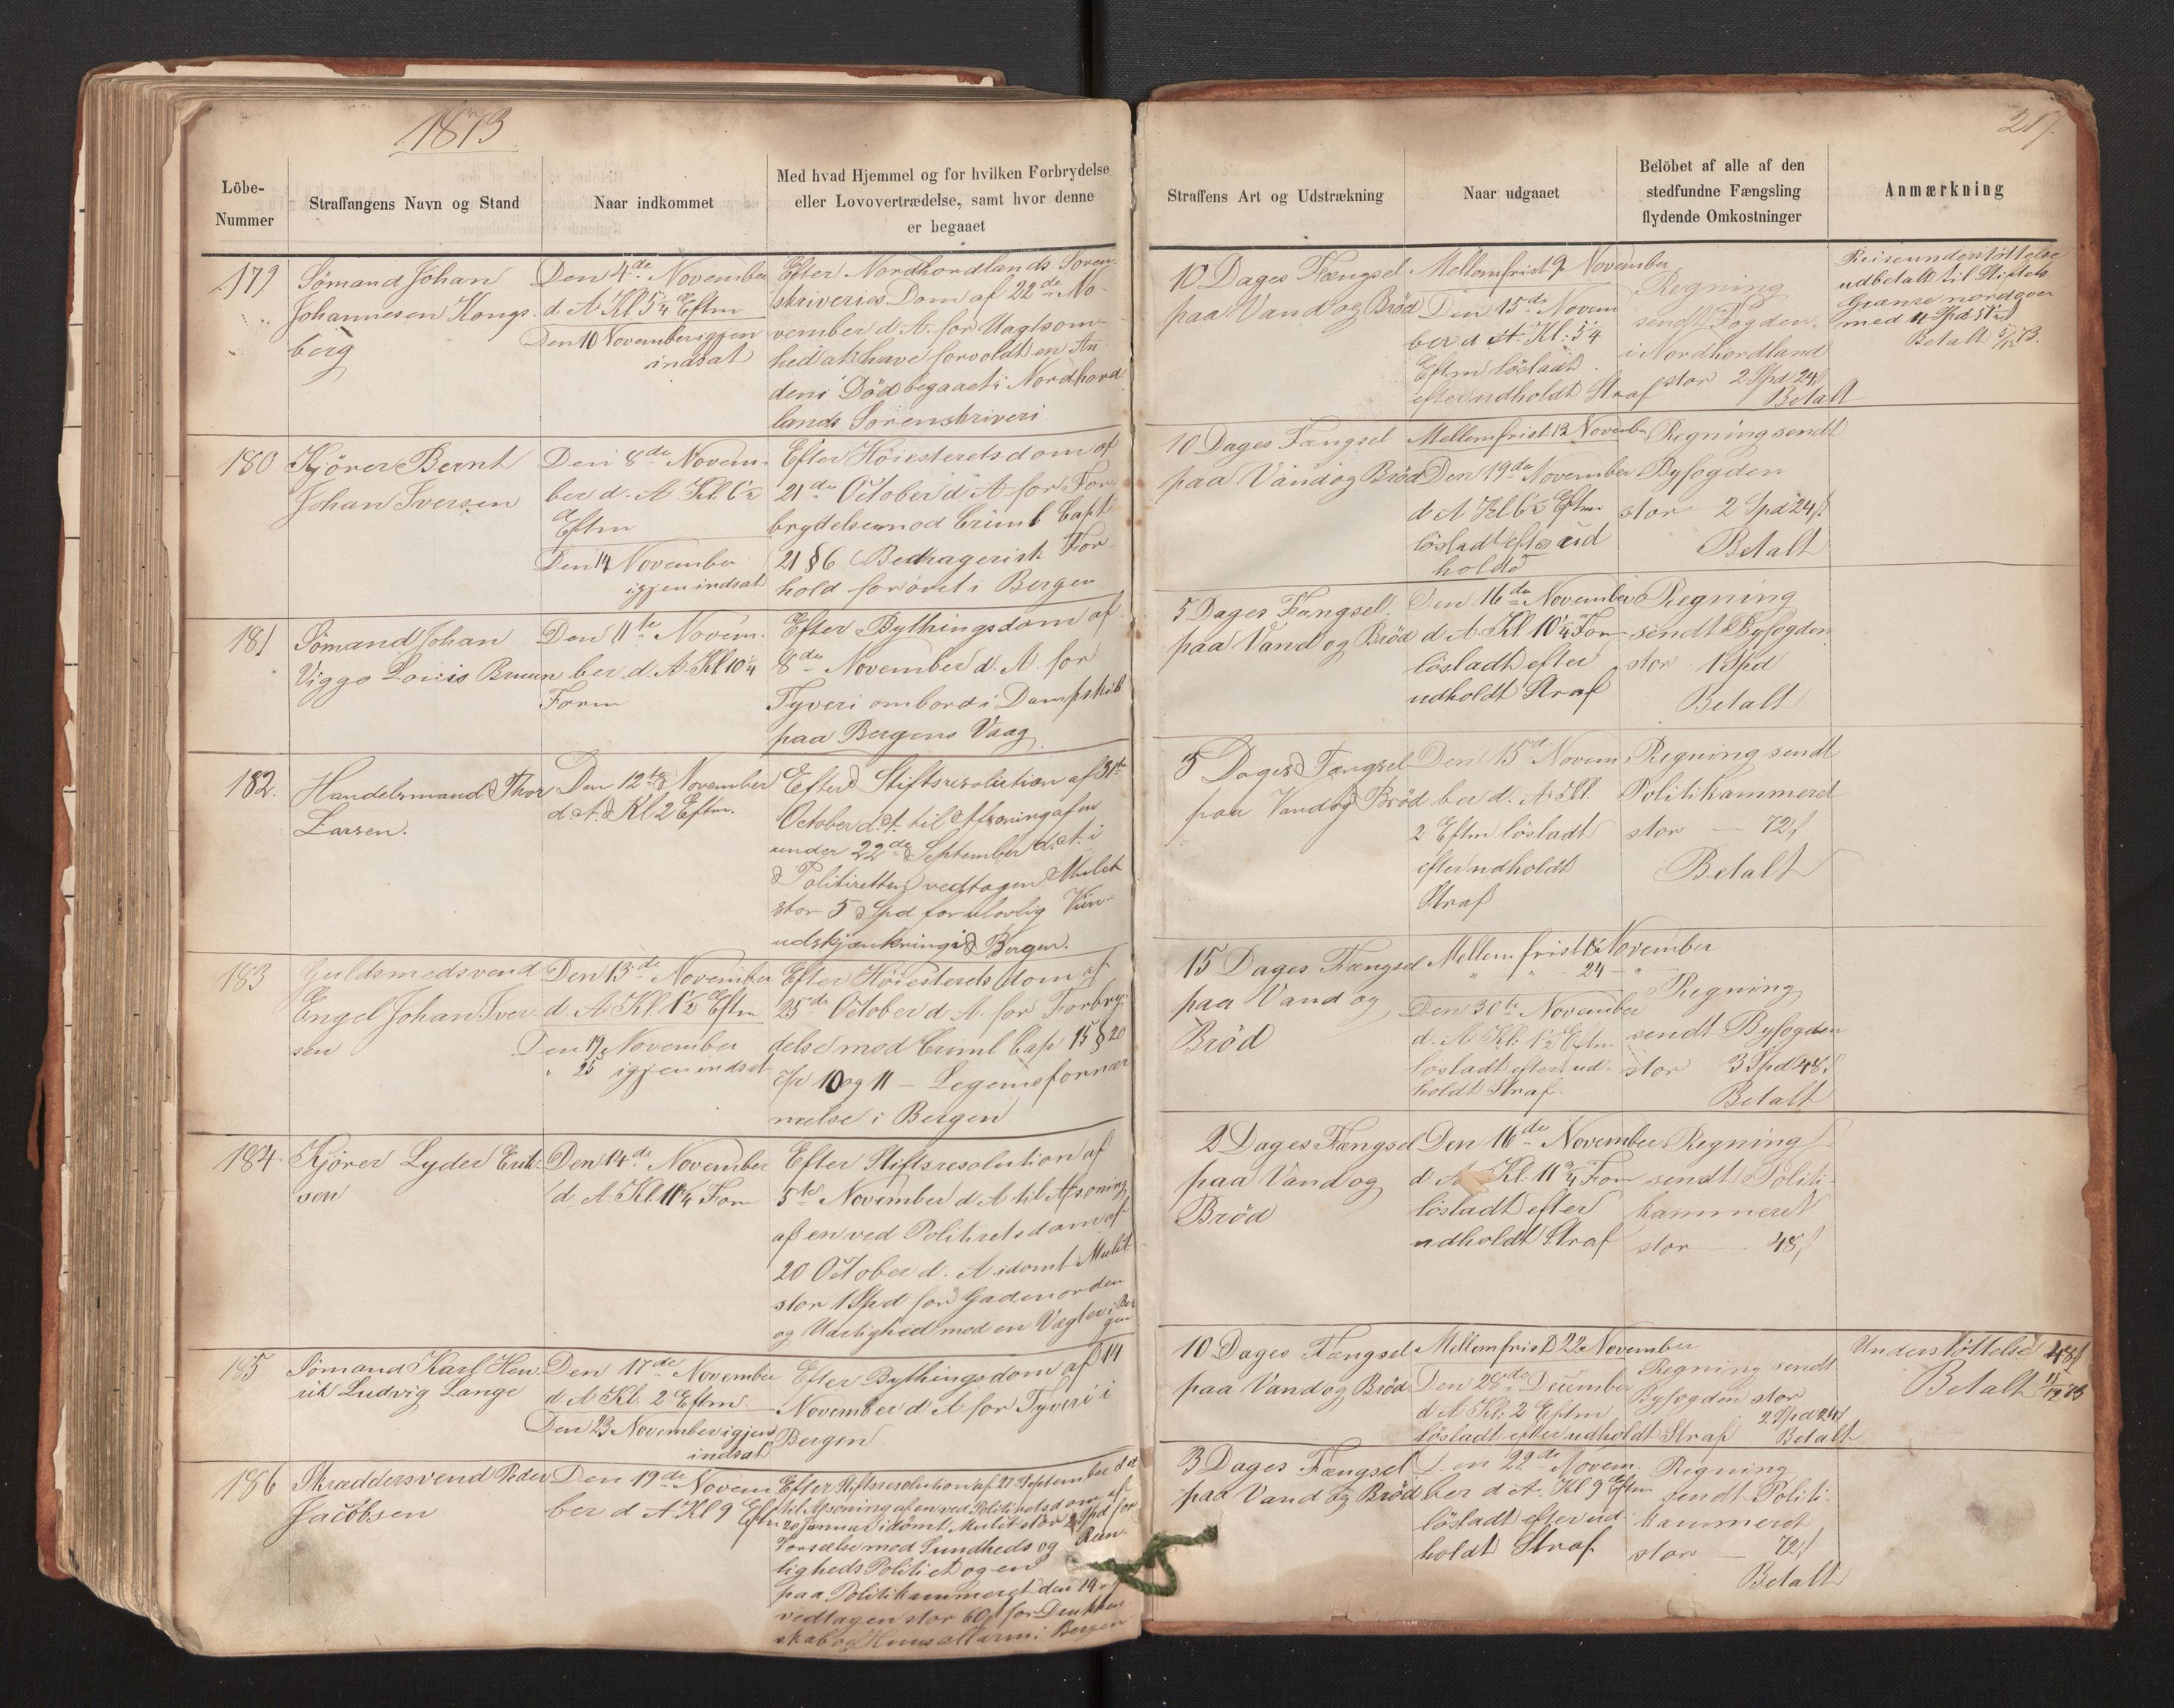 1873
217.
Löbe-
Nummer
Straffangens Navn og Stand
Naar indkommet
Med hvad Hjemmel og for hvilken Forbrydelse
eller Lovovertrædelse, samt hvor denne
er begaaet
Straffens Art og Udstrækning
Naar udgaaet
Belöbet af alle af den
stedfundne Fængsling
flydende Omkostninger
Anmærkning
179
Sömand Johan
Johannesen Kongs-
berg
Den 4de November
d. A Kl 5¼ Eftm
Den 10 November igjen
indsat
Efter Nordhordlands Soren-
skriveries Dom af 22de No-
vember d. A. for Uagtsom-
hed at have forvoldt en An-
dens Död begaaet i Nordhord
lands Sorenskriveri
10 Dages Fængsel
paa Vand og Bröd
Mellemfrist 9 November
Den 15de Novem
ber d A. Kl: 5¼
Eftm lösladt
efter udholdt Straf
Regning
sendt Fogden
i Nordhordland
stor 2 Spd 24 s
Betalt
Reiseunderstöttelse
udbetalt til Stiftets
Grænse nordover
med 4 Spd
Betalt
180
Kjörer Bernt
Johan Iversen
Den 8de Novem-
ber d. A Kl. 6½
Eftm
Den 14 November
igjen indsat
Efter Höiesteretsdom af
21de October d A for For-
brydelse mod Criml Capt
21 § 6 Bedragerisk For-
hold forövet i Bergen
10 Dages Fængsel
paa Vand og Bröd
Mellemfrist 13 November
Den 19de November
d A Kl. 6½ Eftm
lösladt efter ud
holdt
Regning sendt
Byfogden
stor 2 Spd 24 s
Betalt
181
Sömand Johan
Viggo Louis Bruun
Den 11te Novem-
ber d. A Kl 10¼
Form
Efter Bythingsdom af
8de November d. A. for
Tyveri ombord i Dampskib
paa Bergens Vaag
5 Dages Fængsel
paa Vand og Bröd
Den 16de November
d A Kl 10¼ Form
lösladt efter
udholdt Straf
Regning
sendt Byfogden
stor 1 Spd
Betalt
182.
Handelsmand Thor
Larsen.
Den 12te November
d. A. Kl 2 Eftm.
Efter Stiftsresolution af 31te
October d. A. til Afsoning af en
under 22de September d. A. i
Politiretten vedtagen Mulct
stor 5 Spd for ulovlig Viin-
udskjænkning i Bergen.
5 Dages Fængsel
paa Vand og Bröd
Den 15de Novem
ber d. A Kl.
2 Eftm lösladt
efter udholdt
Straf
Regning sendt
Politikammeret
stor — 72 s
Betalt
183
Guldsmedsvend
Engel Johan Iver-
sen
Den 13de November
d. A Kl. 1½ Eftm
Den 19 November
" 25 igjen indsat
Efter Höiesterets dom af
25de October d A. for Forbry-
delse mod Criml Cap 15 § 20
cfr 10 og 11 – Legemsfornær
melse i Bergen
15 Dages Fængsel
paa Vand og
Bröd
Mellemfrist 18 November
" " 24 "
Den 30te November
d. A Kl: 1½ Eftm
lösladt efter ud-
holdt Straf.
Regning
sendt Byfogden
stor 3 Spd 48 s
Betalt
184
Kjörer Lyder Erik-
sen
Den 14de November
d. A Kl. 11¾ Form
Efter Stiftsresolution af
5te November d A til Afsoning
af en ved Politiretsdom af
20 October d. A idömt Mulct
stor 1 Spd for Gadeuorden
og Uartighed mod en Vægter i Ber
gen
2 Dages Fængsel
paa Vand og
Bröd
Den 16de November
d. A Kl. 11¾ Form
lösladt efter
udholdt Straf
Regning
sendt Politi-
kammeret
stor — 48 s
185
Sömand Karl Hen-
rik Ludvig Lange
Den 17de November
d. A Kl. 2 Eftm.
Den 23 November igjen
indsat
Efter Bythingsdom af 14
November d A for Tyveri i
Bergen
10 Dages Fængsel
paa Vand og Bröd
Mellemfrist 22 November
Den 28de December
d A Kl: 2 Eftm
lösladt efter udholdt Straf
Regning sendt
Byfogden stor
2 Spd 24 s
Betalt
Understöttelse 48 s
Betalt 11/12 73
186
Skræddersvend Peder
Jacobsen
Den 19de Novem
ber d A Kl 9 Eftm
Efter Stiftsresolution af 27 September d A
til Afsoning af en ved Politiretsdom af
20 Januar idömt Mulct stor 2 Spd for
Forseelse mod Sundheds og Reen-
ligheds Politiet og en
paa Politikammeret den 19
vedtagen stor 60 s for Drukken
skab og Huusallarm i Bergen
3 Dages Fængsel
paa Vand og Bröd
Den 22de Novem-
ber d A. Kl 9 Eftm
lösladt efter ud-
holdt Straf
Regning
sendt Politi-
kammeret
stor — 72 s
Betalt